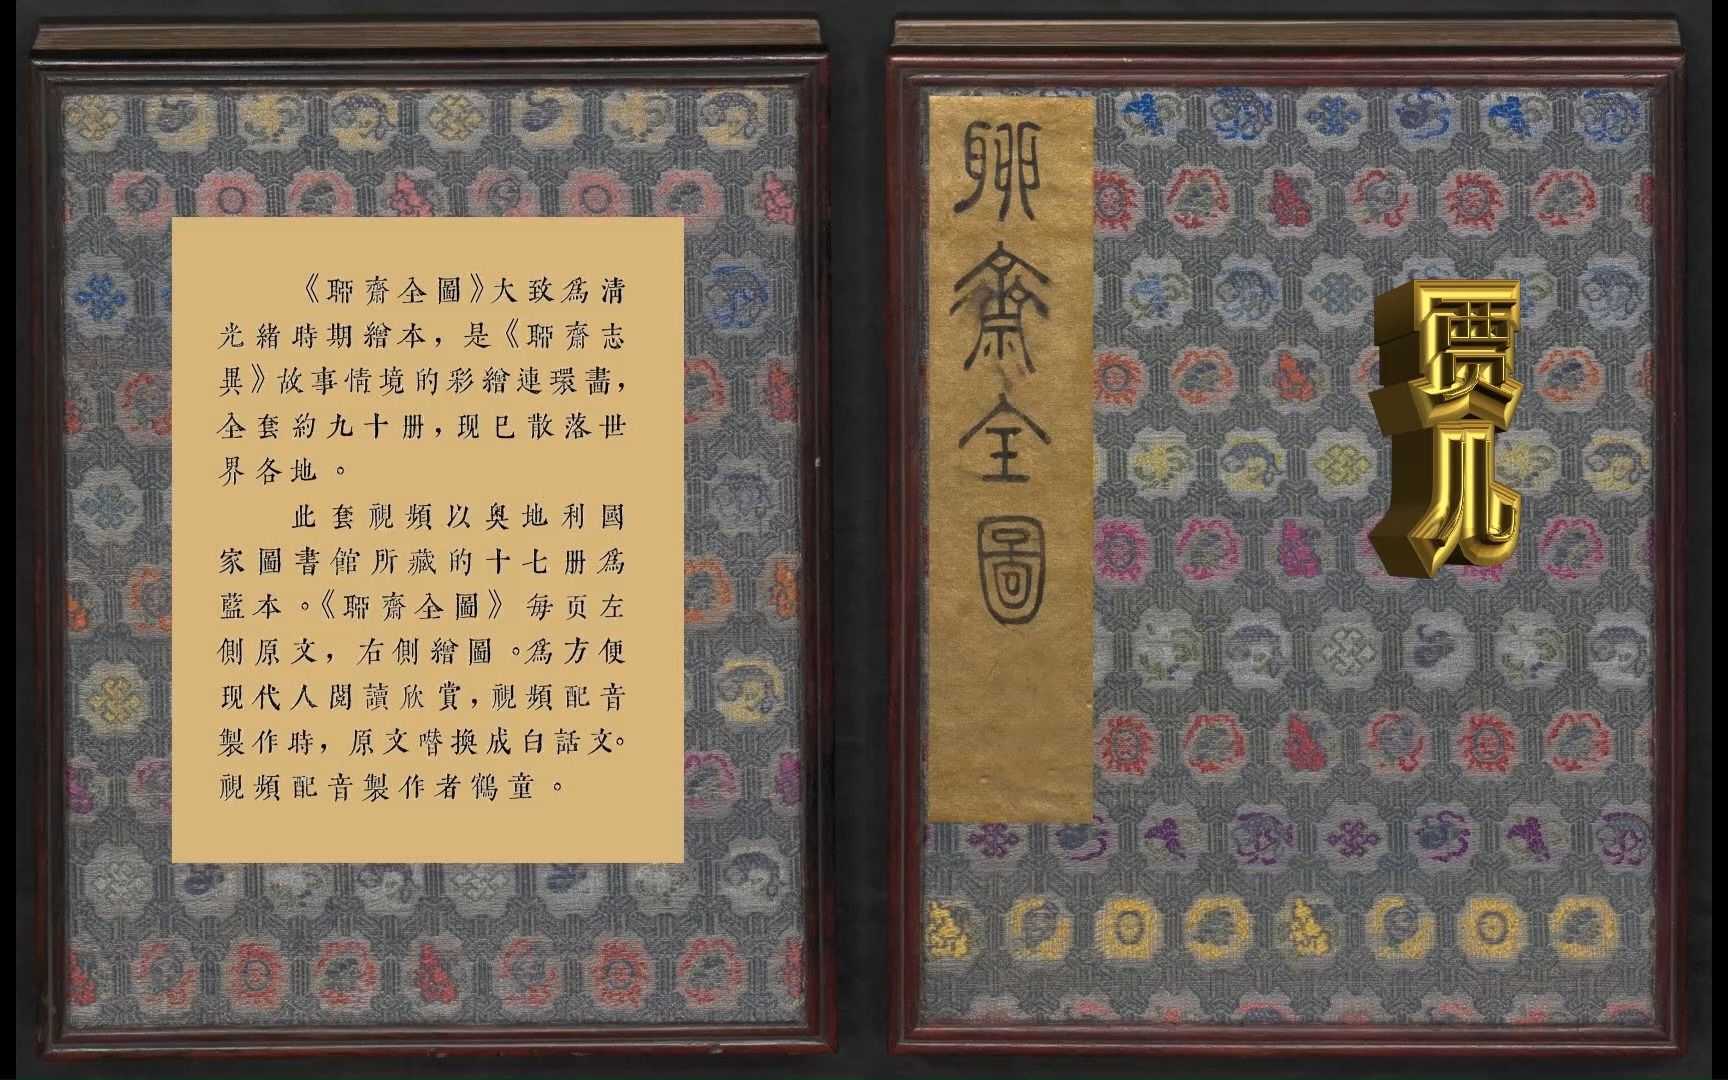 《聊齋全圖》大致爲清
光緒時期繪本，是《聊齋志
異》故事情境的彩繪連環畵，
全套約九十册，现已散落世
界各地。
此套視頻以奥地利國
家圖書館所藏的十七册爲
藍本。《聊齋全圖》每页左
側原文，右側繪圖。爲方便
现代人閲讀欣賞，視頻配音
製作時，原文暓換成白話文。
視頻配音製作者鶴童。
聊齋全圖
贾儿